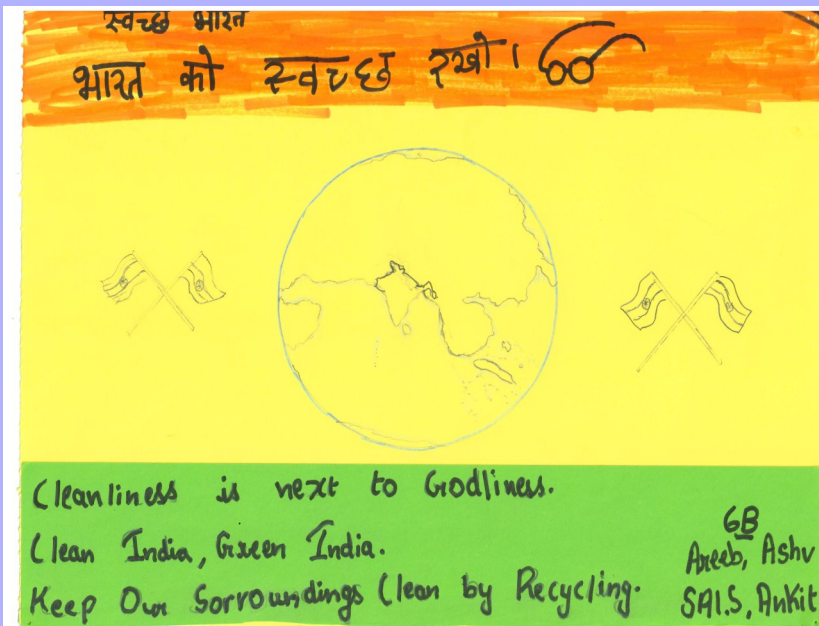 स्वच्छ भारत
भारत को स्वच्छ रखो।
Cleanliness is next to Godliness.
Clean India, Green India.
Keep Our Sorroundings Clean by Recycling.
6B
Areeb, Ashv
SAI.S, Ankit